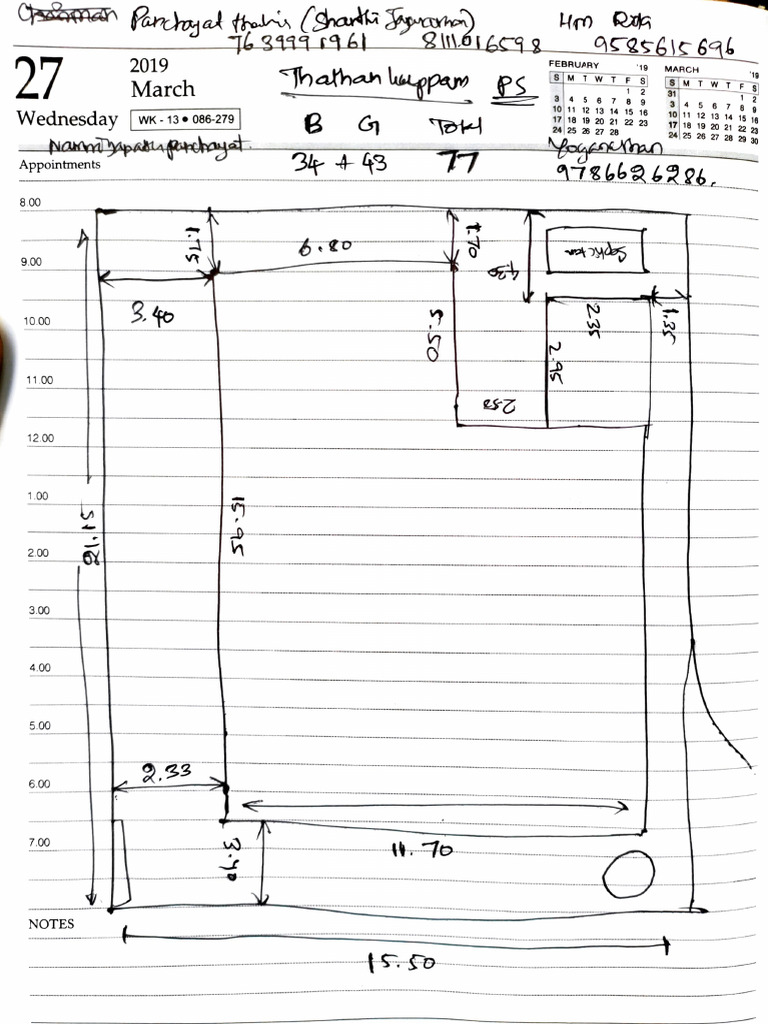 Chairman Panchayat thalaivi (Shanthi Jayaraman) HM Rita
7639991961 8111016598 9585615696
27 2019 March
Wednesday WK - 13 • 086-279
Thathankuppam PS
B G Total
34 + 43 77
FEBRUARY '19
S M T W T F S
1 2
3 4 5 6 7 8 9
10 11 12 13 14 15 16
17 18 19 20 21 22 23
24 25 26 27 28
MARCH '19
S M T W T F S
31 1 2
3 4 5 6 7 8 9
10 11 12 13 14 15 16
17 18 19 20 21 22 23
24 25 26 27 28 29 30
panchayat
Yoganathan
9786626286.
Appointments
8.00
1.75
6.80
1.70
4.30
Septictan
9.00
3.40
5.50
2.35
1.35
10.00
2.95
11.00
2.50
12.00
1.00
21.15
15.95
2.00
3.00
4.00
5.00
6.00
2.33
7.00
3.40
11.70
NOTES
15.50